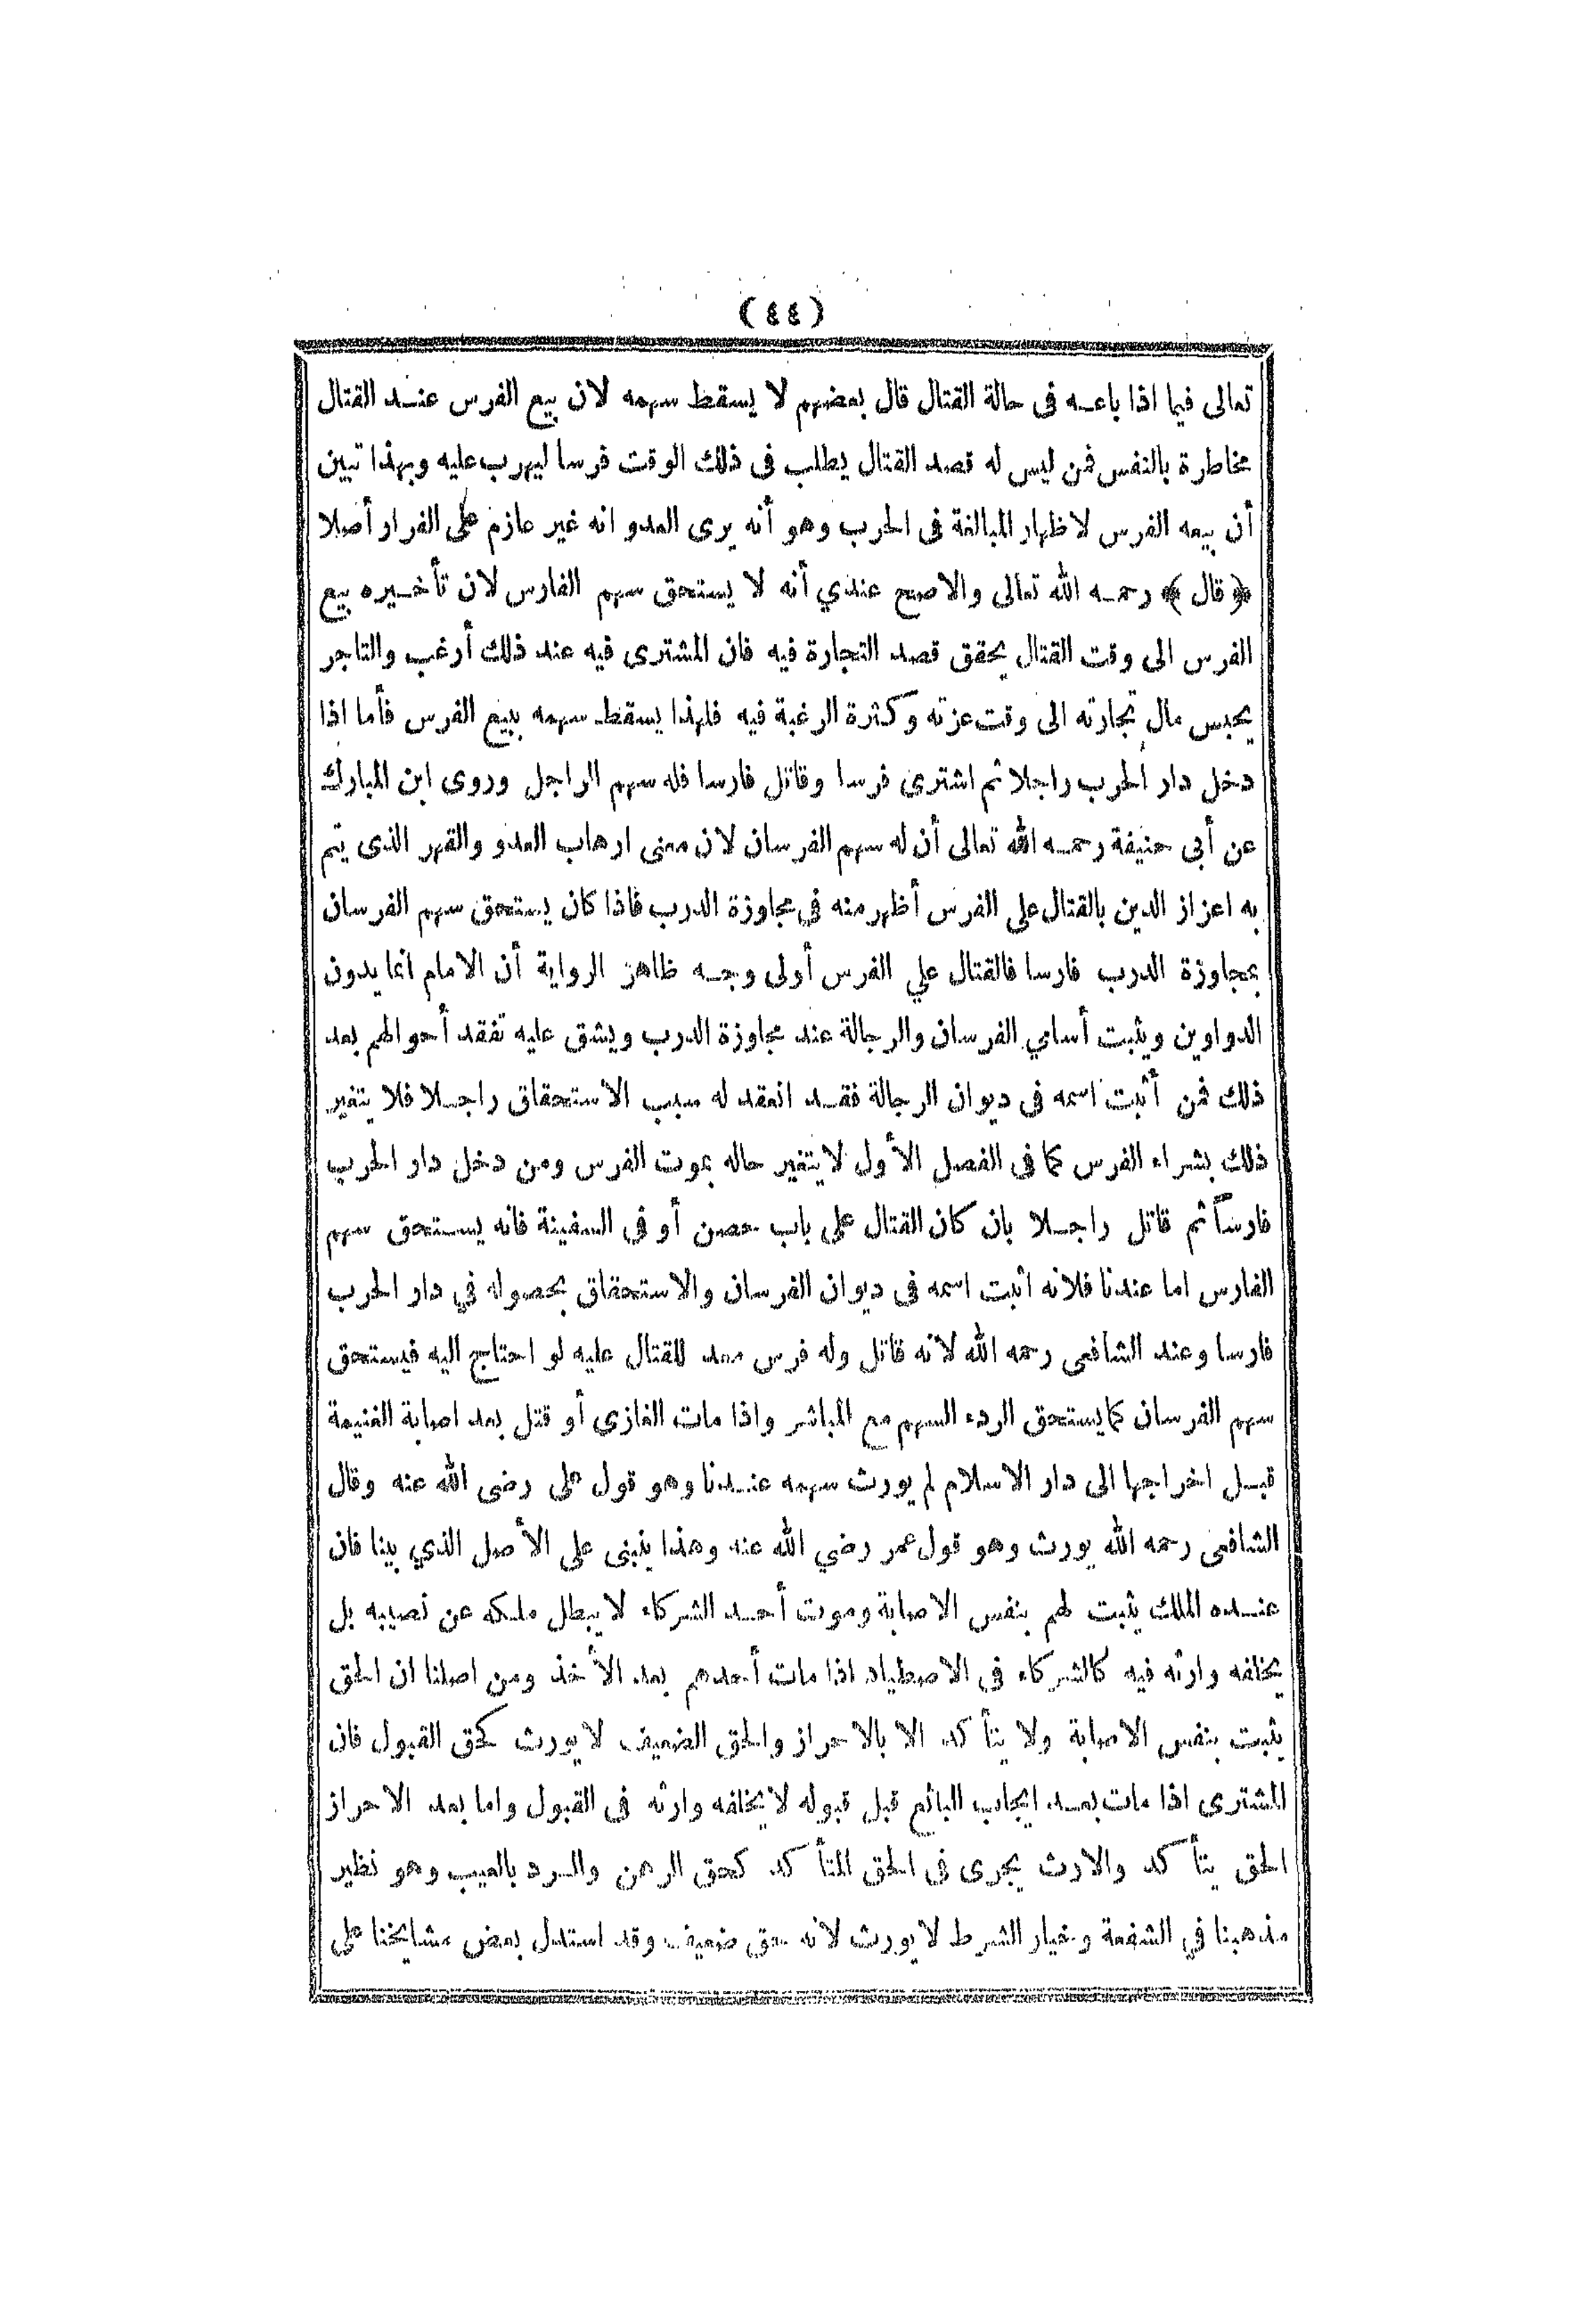 (٤٤)
تعالى فيما اذا باعه فى حالة القتال قال بعضهم لا يسقط سهمه لان بيع الفرس عند القتال
مخاطرة بالنفس فمن ليس له قصد القتال يطلب فى ذلك الوقت فرسا ليهرب عليه وبهذا تبين
أن بيعه الفرس لاظهار المبالغة فى الحرب وهو أنه يرى العدو انه غير عازم على الفرار أصلا
﴿ قال ﴾ رحمه الله تعالى والاصح عندي أنه لا يستحق سهم الفارس لان تأخيره بيع
الفرس الى وقت القتال يحقق قصد التجارة فيه فان المشترى فيه عند ذلك أرغب والتاجر
يحبس مال تجارته الى وقت عزته وكثرة الرغبة فيه فلهذا يسقط سهمه ببيع الفرس فأما اذا
دخل دار الحرب راجلا ثم اشترى فرسا وقاتل فارسا فله سهم الراجل وروى ابن المبارك
عن أبى حنيفة رحمه الله تعالى أن له سهم الفرسان لان معنى ارهاب العدو والقهر الذى يتم
به اعزاز الدين بالقتال على الفرس أظهر منه في مجاوزة الدرب فاذا كان يستحق سهم الفرسان
بمجاوزة الدرب فارسا فالقتال علي الفرس أولى وجه ظاهر الرواية أن الامام انما يدون
الدواوين ويثبت أسامي الفرسان والرجالة عند مجاوزة الدرب ويشق عليه تفقد أحوالهم بعد
ذلك فمن أثبت اسمه فى ديوان الرجالة فقد انعقد له سبب الاستحقاق راجلا فلا يتغير
ذلك بشراء الفرس كما فى الفصل الأول لا يتغير حاله بموت الفرس ومن دخل دار الحرب
فارساً ثم قاتل راجلا بان كان القتال على باب حصن أو فى السفينة فانه يستحق سهم
الفارس اما عندنا فلانه اثبت اسمه فى ديوان الفرسان والاستحقاق بحصوله في دار الحرب
فارسا وعند الشافعى رحمه الله لانه قاتل وله فرس معد للقتال عليه لو احتاج اليه فيستحق
سهم الفرسان كما يستحق الردء السهم مع المباشر واذا مات الغازى أو قتل بعد اصابة الغنيمة
قبل اخراجها الى دار الاسلام لم يورث سهمه عندنا وهو قول على رضى الله عنه وقال
الشافعى رحمه الله يورث وهو قول عمر رضي الله عنه وهذا ينبنى على الأصل الذي بينا فان
عنده الملك يثبت لهم بنفس الاصابة وموت أحد الشركاء لا يبطل ملكه عن نصيبه بل
يخلفه وارثه فيه كالشركاء فى الاصطياد اذا مات أحدهم بعد الأخذ ومن اصلنا ان الحق
يثبت بنفس الاصابة ولا يتأكد الا بالاحراز والحق الضعيف لا يورث كحق القبول فان
المشترى اذا مات بعد ايجاب البائع قبل قبوله لا يخلفه وارثه فى القبول واما بعد الاحراز
الحق يتأكد والارث يجرى فى الحق المتأكد كحق الرهن والرد بالعيب وهو نظير
مذهبنا في الشفعة وخيار الشرط لا يورث لانه حق ضعيف وقد استدل بعض مشايخنا على